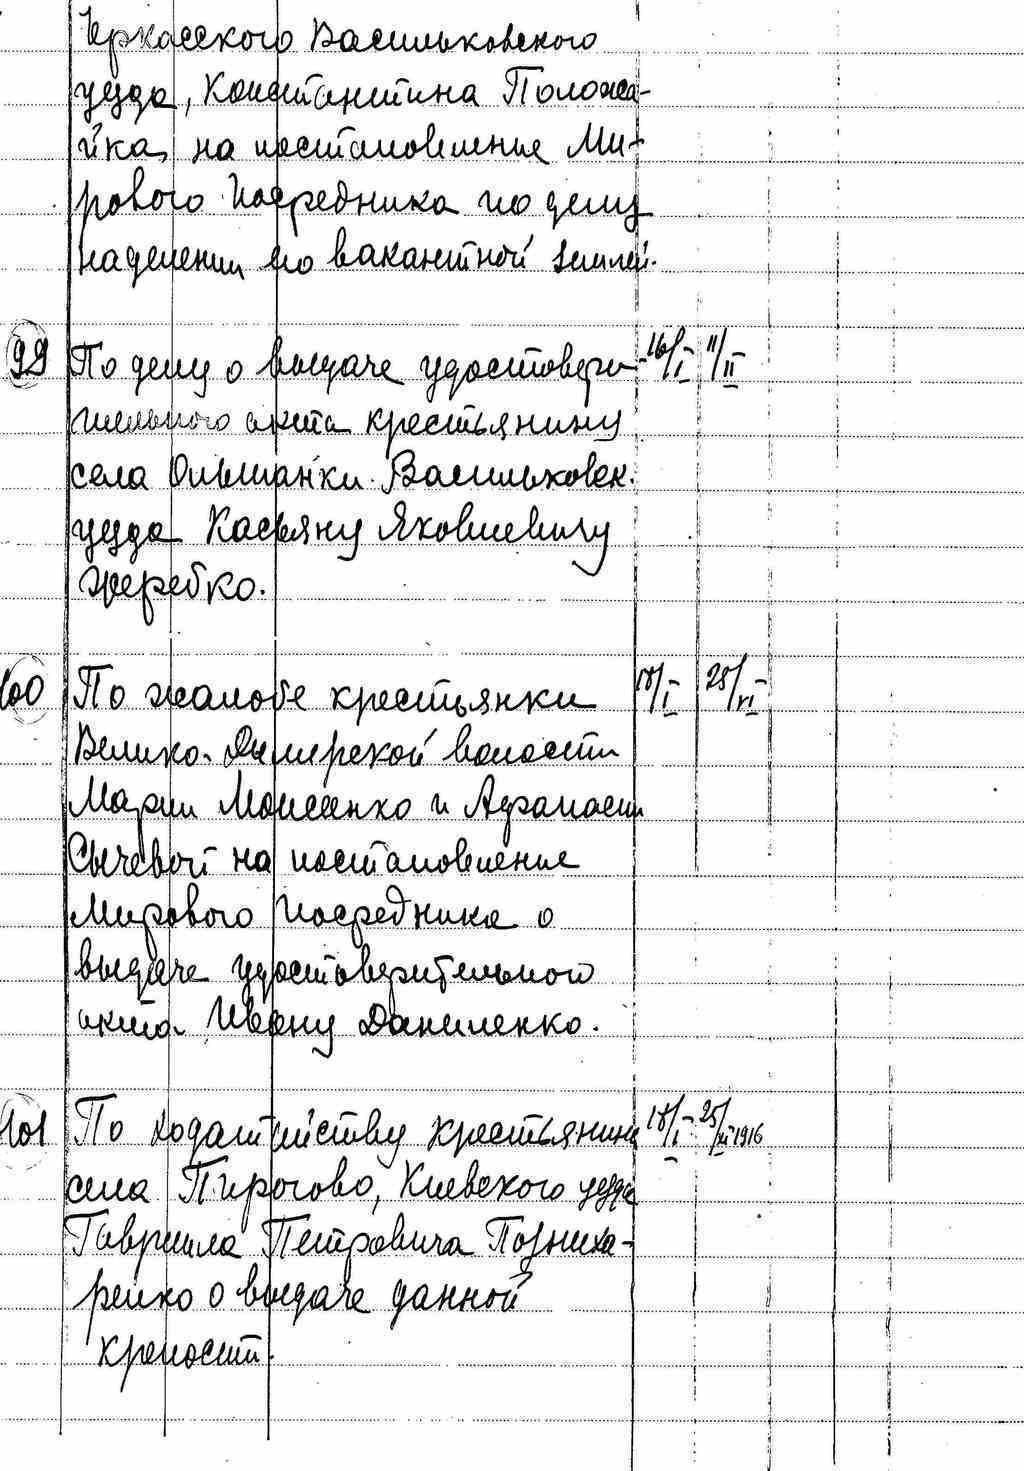 Черкасского Васильковского
уезда, Константина Положа-
йка, на постановление Ми-
рового Посредника по делу
наделении его вакантной землей.
99 По делу о выдаче удостовери- 16/I 11/II
тельного акта крестьянину
села Ольшанки Васильковск.
уезда Касьяну Яковлевичу
Жеребко.
100 По жалобе крестьянки 18/I 28/VI
Велико-Дымерской волости
Марии Моисеенко и Афанасии
Сычевой на постановление
Мирового Посредника о
выдаче удостоверительного
акта Ивану Даниленко.
101 По ходатайству крестьянина 18/I 25/ 1916
села Пирогово, Киевского уезда
Гавриила Петровича
о выдаче данной
крепости.